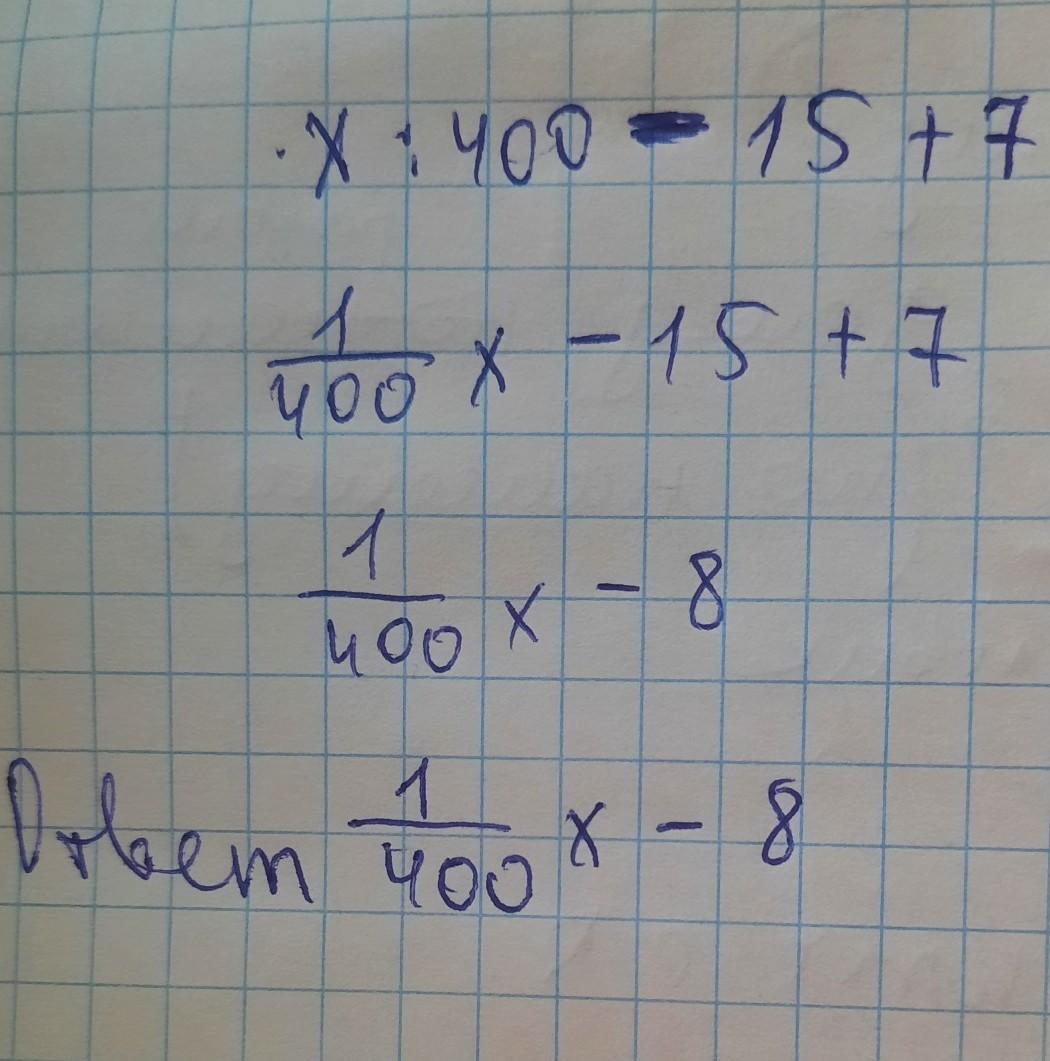 x : 400 - 15 + 7
1/400 x - 15 + 7
1/400 x - 8
Ответ 1/400 x - 8